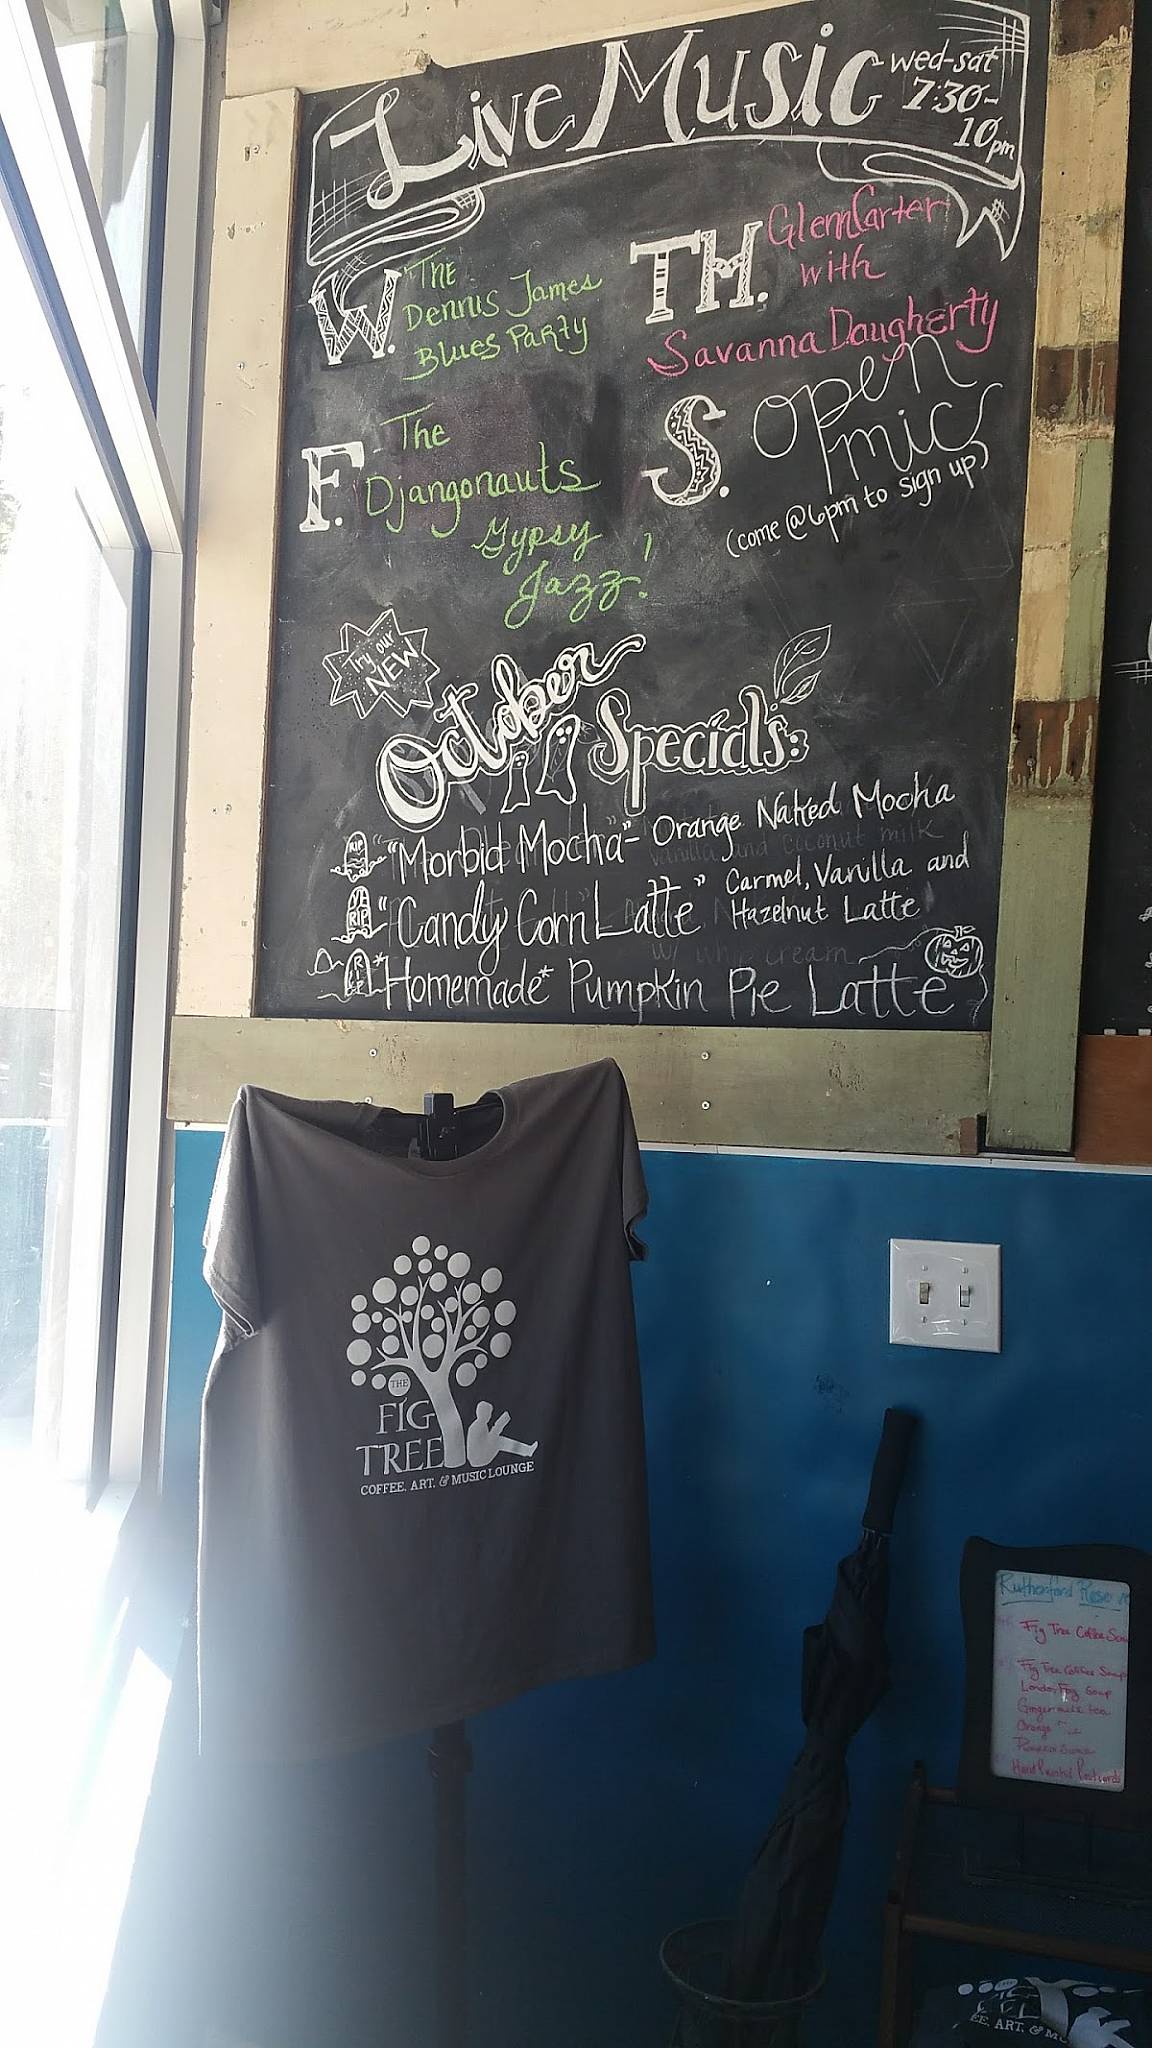 Live Music wed-sat
7:30-
10pm
W. The
Dennis James
Blues Party
TH. Glenn Carter
with
Savanna Daugherty
F. The
Djangonauts
Gypsy
Jazz!
S. open
mic
(come @ 6pm to sign up)
Try our
NEW
October Specials:
RIP "Morbid Mocha" - Orange Naked Mocha
vanilla and coconut milk
RIP "Candy Corn Latte" Carmel, Vanilla and
Hazelnut Latte
w/ whip cream
RIP *Homemade* Pumpkin Pie Latte
THE
FIG
TREE
COFFEE, ART, & MUSIC LOUNGE
Rutherford
Fig Tree Coffee
Fig Tree Coffee Soap
London Fog Soap
Orange
Hand Painted Postcards
EE, ART, & MU